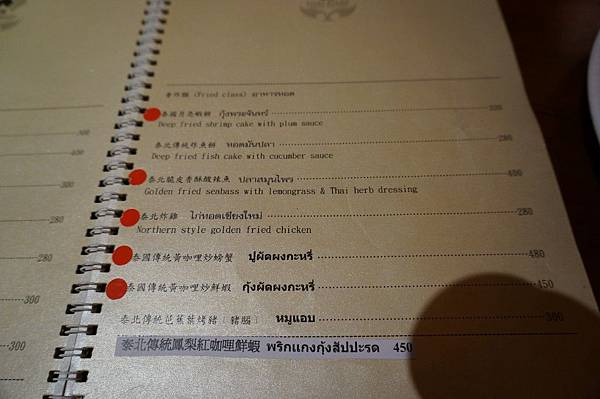 香炸類 (Fried class) อาหารทอด
泰國月亮蝦餅 กุ้งพระจันทร์ 320
Deep fried shrimp cake with plum sauce
泰北傳統炸魚餅 ทอดมันปลา 280
Deep fried fish cake with cucumber sauce
泰北脆皮香酥酸辣魚 ปลาสมุนไพร 450
Golden fried seabass with lemongrass & Thai herb dressing
泰北炸雞 ไก่ทอดเชียงใหม่ 280
Northern style golden fried chicken
泰國傳統黃咖哩炒螃蟹 ปูผัดผงกะหรี่ 480
泰國傳統黃咖哩炒鮮蝦 กุ้งผัดผงกะหรี่ 450
泰北傳統芭蕉葉烤豬〔豬腦〕 หมูแอบ 300
泰北傳統鳳梨紅咖哩鮮蝦 พริกแกงกุ้งสัปปะรด 450
300
400
450
280
380
300
300